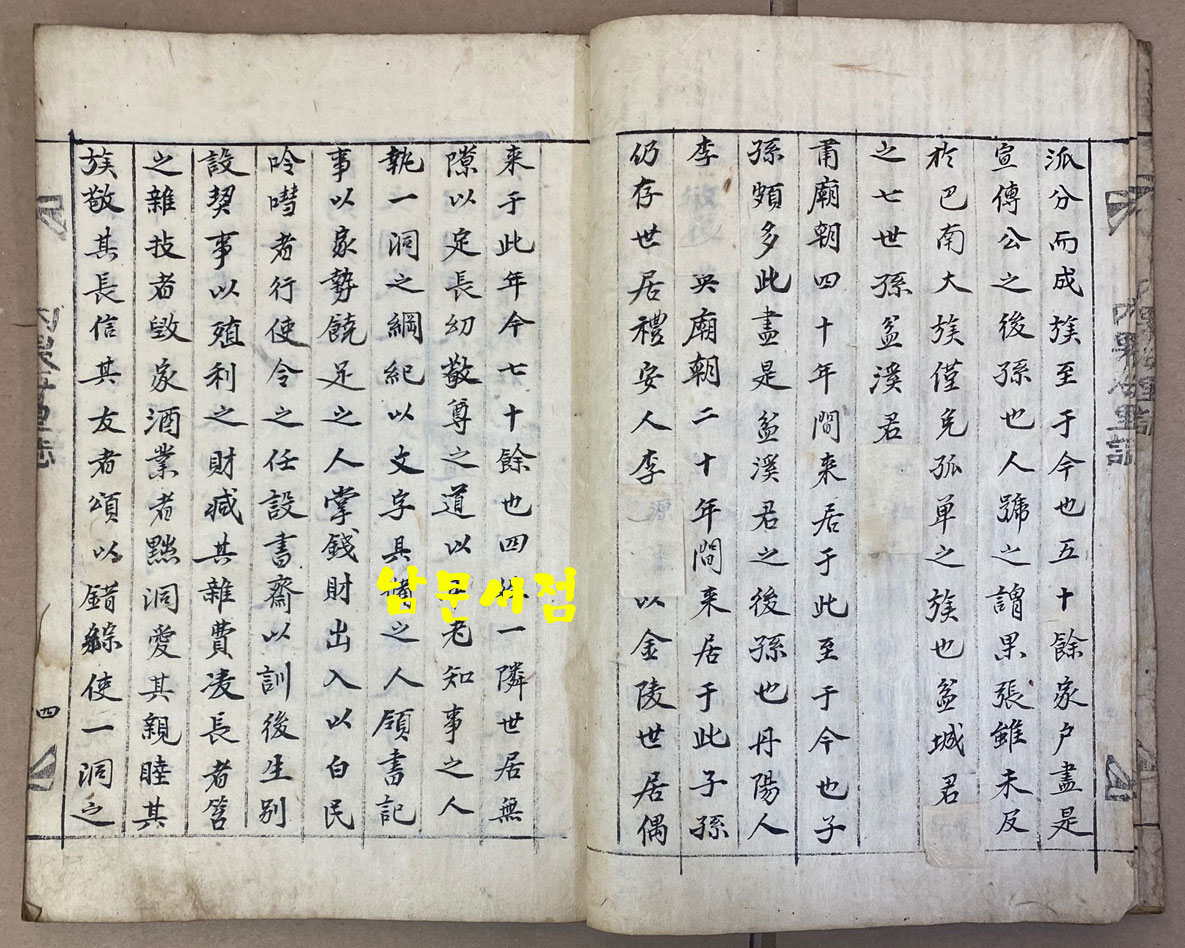 派分而成族至于今也五十餘家户盡是
宣傳公之後孫也人號之謂果張雖未反
於巴南大族僅免孤單之族也盆城君
之七世孫盆溪君
肅廟朝四十年間来居于此至于今也子
孫頗多此盡是盆溪君之後孫也丹陽人
李 英廟朝二十年間来居于此子孫
仍存世居禮安人李 以金陵世居偶
来于此年今七十餘也四 一隣世居無
隙以定長幼敬尊之道以 老知事之人
執一洞之綱紀以文字具備之人領書記
事以家勢饒足之人掌錢財出入以白民
呤囈者行使令之任設書齋以訓後生別
設契事以殖利之財减其雜費凌長者笞
之雜技者毁家酒業者黜洞愛其親睦其
族敬其長信其友者頌以錯綜使一洞之
四
남문서점